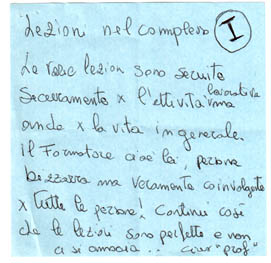 Lezioni nel complesso I
Le vose lezion sono seguite
Sceccamente x l'attività lavorativa
anche x la vita in generale.
il Formatore cioè lei, persona
bizzarra ma veramente coinvolgente
x tutte le persone! Continui così
che le lezioni sono perfette e non
ci si annoia.. ciao "prof"